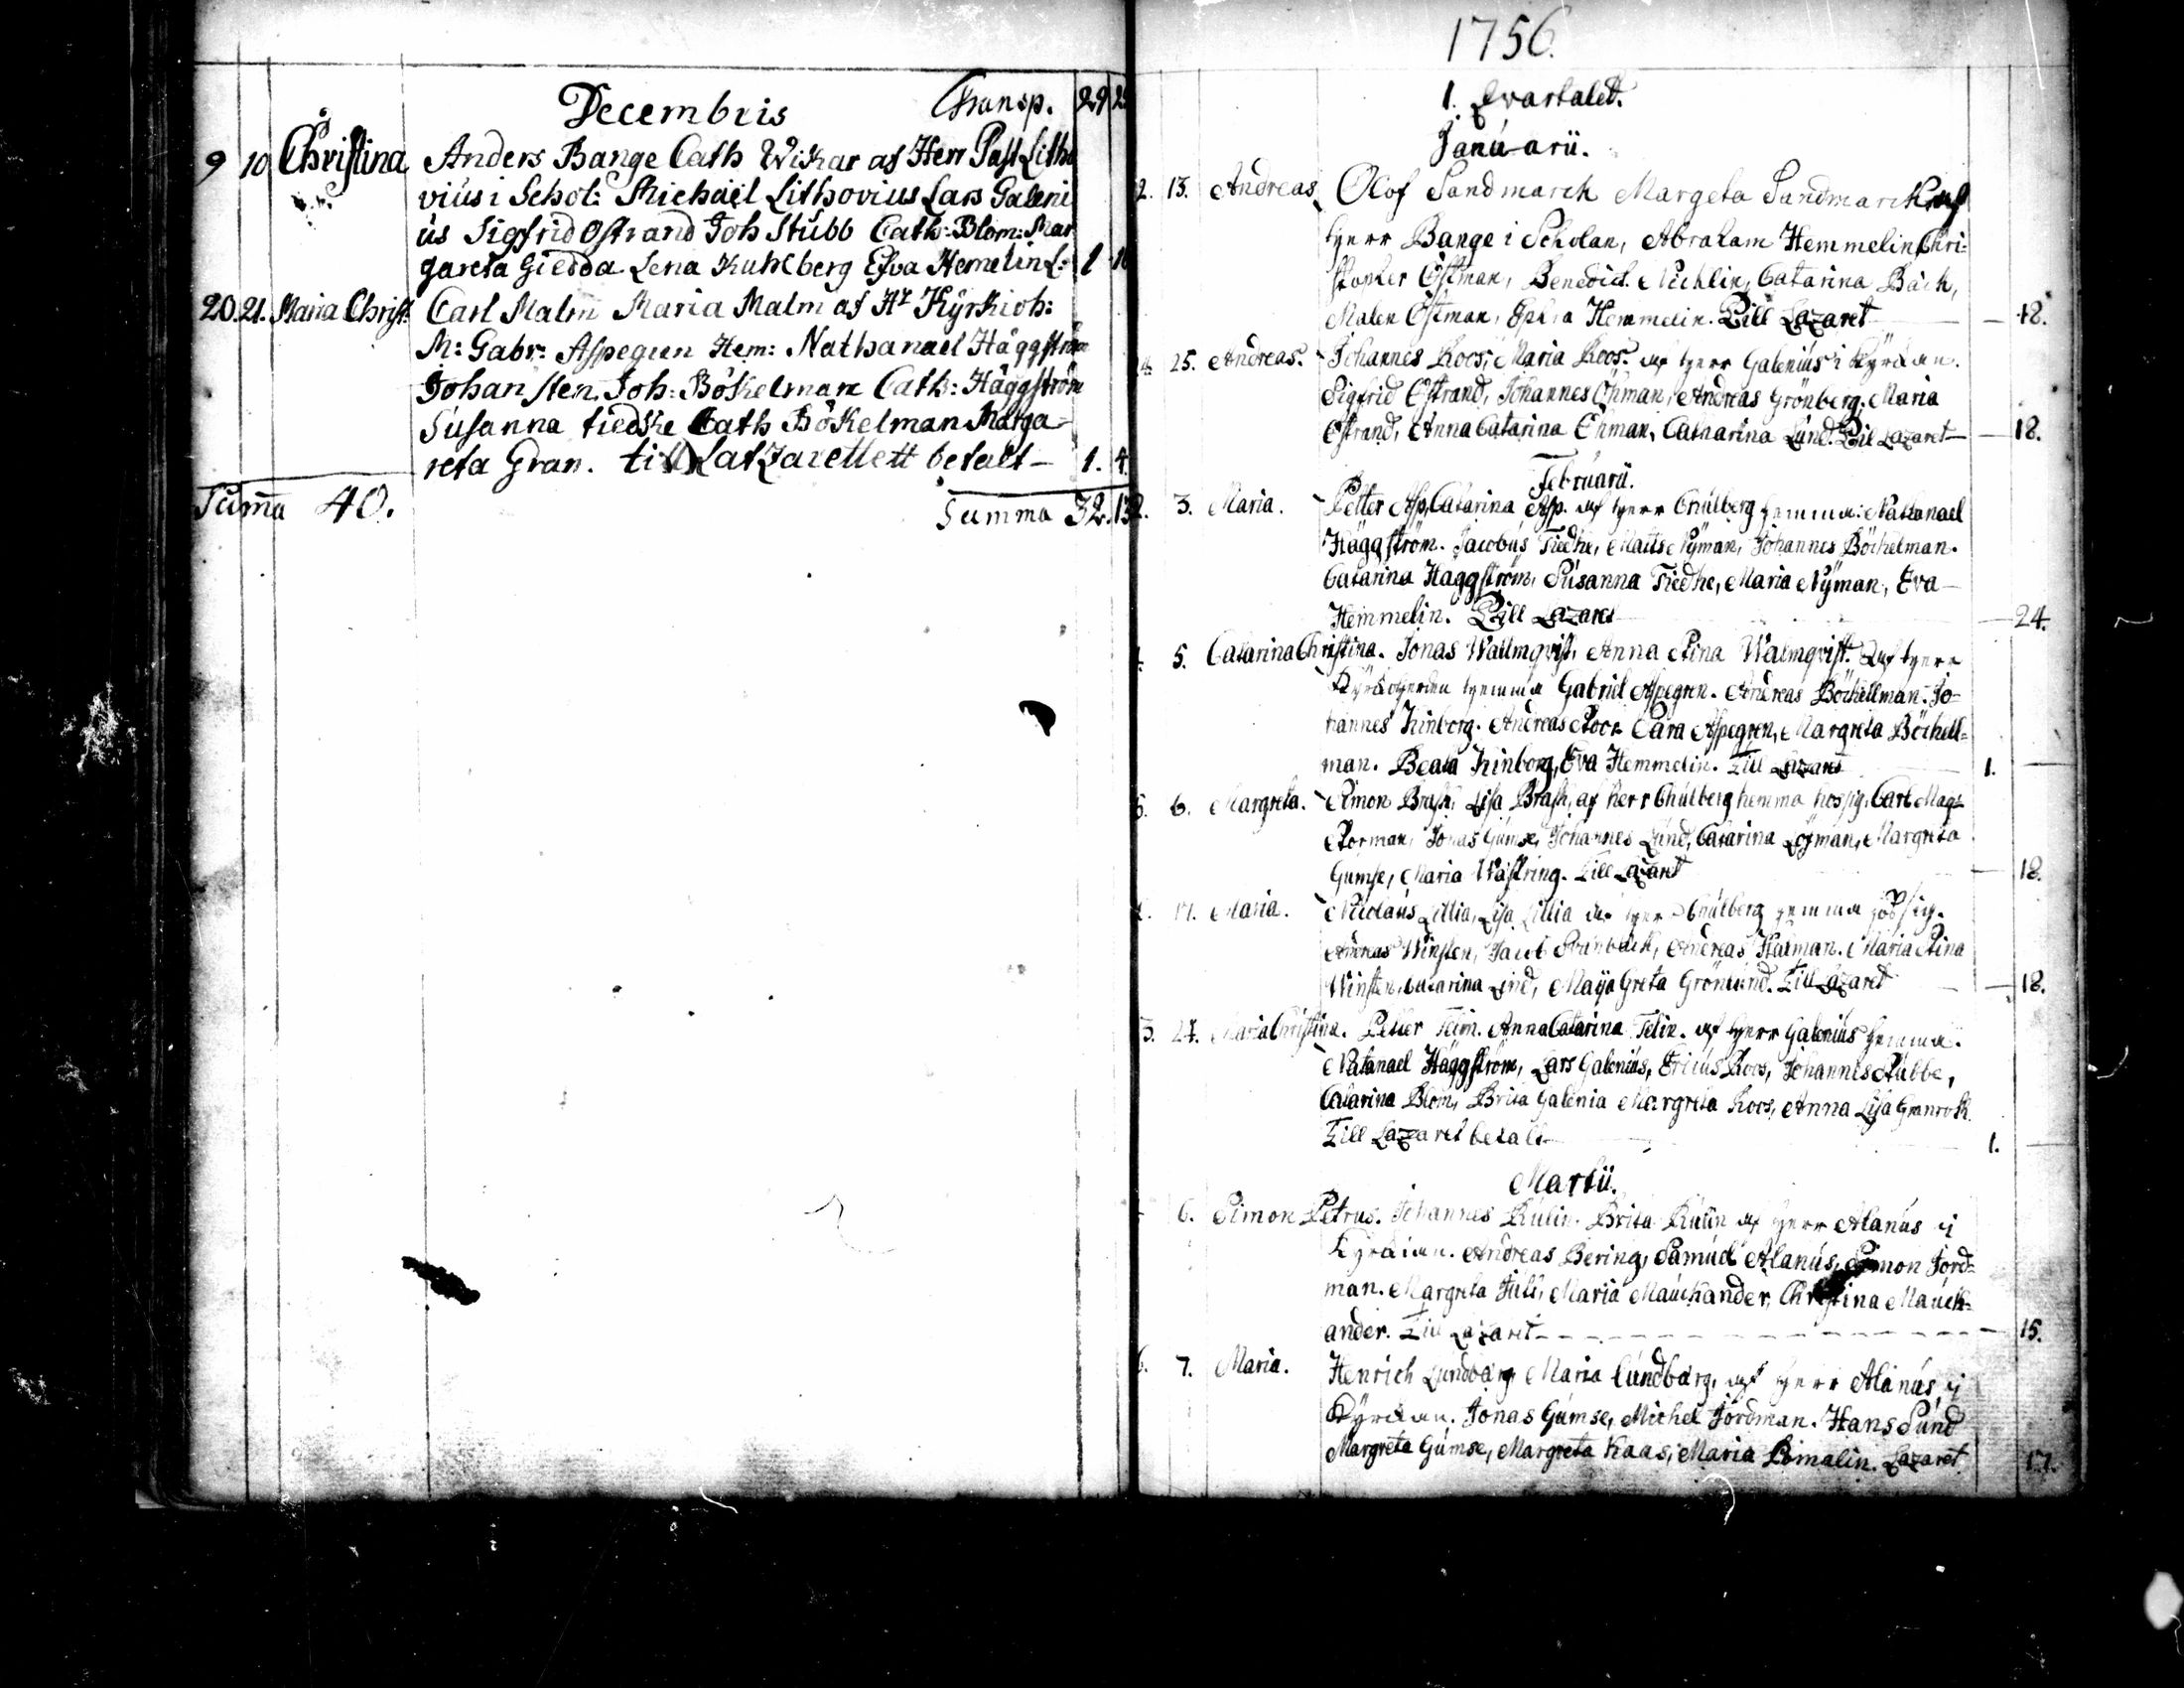 Decembris Transp. 29
9 10 Christina Anders Bange Cath Wikar af Herr Past Litho
vius i Schol: Michaël Lithovius Lars Galeni
us Sigfrid Östrand Joh Stubb Cath: Blom: Mar
gareta Giedda Lena Kuhlberg Efva Hemelin L: 1
20. 21. Maria Christ. Carl Malm Maria Malm af Hr Kÿrkioh:
M: Gabr: Aspegren Hem: Nathanaël Häggström
Johan Sten. Joh: Bökelman Cath: Häggström
Susanna tiedske Cath Bökelman Marga
reta Gran. till Latzarettett betalt — 1. 4.
Suma 40. Summa 32.
1756.
1. Qvartalet.
Januarii.
2. 13. Andreas Olof Sandmarck Margeta Sandmarck af
herr Bange i Scholan, Abraham Hemmelin, Chri-
stopher Östman, Benedict. Catarina Bäck,
Malen Östman, Hemmelin. Till Lazaret — 18.
25. Andreas. Johannes Roos, Maria Roos. af herr Galenius i kÿrckan.
Sigfrid Östrand, Johannes Öhman, Andreas Grönberg, Maria
Östrand, Anna Catarina Öhman, Catharina Lund. Till Lazaret — 18.
Februarii.
3. Maria. Petter Asp, Catarina Asp. af herr Chulberg hemma: Nathanael
Häggström. Jacobus Tiedke, Matts Nÿman, Johannes Böckelman.
Catarina Häggström, Susanna Tiedke, Maria Nÿman, Eva
Hemmelin. Till Lazaret — 24.
5. Catarina Christina. Jonas Wallmqvist, Anna Stina Walmqvist. af herr
Kÿrckoherden hemma Gabriel Aspegren. Andreas Böckellman. Jo-
hannes Kinborg. Andreas Roos Sara Aspegren, Margreta Böckell-
man. Beata Kinborg, Eva Hemmelin. Till Lazaret 1. —
6. Margreta. Simon Brask, Lisa Brask, af herr Chulberg hemma hos sig. Carl Mags
Storman, Jonas Gumse, Johannes Lund, Catarina Löfman, Margreta
Gumse, Maria Wästring. Till Lazaret — 18.
17. Maria. Nicolaus Lillia, Lisa Lillia af herr Chulberg hemma hos sig.
Andreas Winsten, Jacob Andreas Harman. Maria Stina
Winsten, Catarina Lind, Maÿa Greta Grönlund. Till Lazaret — 18.
24. Maria Christina. Petter Telin. Anna Catarina Telin. af herr Galenius hemma.
Natanael Häggström, Lars Galenius, Ericus Roos, Johannes Stubbe,
Catarina Blom, Brita Galenia Margreta Roos, Anna Lisa Granrot.
Till Lazaret betalt 1. —
Martii.
6. Simon Petrus. Johannes Kulin. Brita Kulin af herr Alanus i
Kÿrckian. Andreas Bering, Samuel Alanus, Simon Jord-
man. Margreta Maria Mauckander, Christina Mauck-
ander. Till Lazaret — 15.
7. Maria. Henrich Lundbärg Maria Lundbärg, af herr Alanus i
Kÿrckan. Jonas Gumse, Michel Jordman. Hans Sund
Margreta Gumse, Margreta Kaas, Maria Lazaret. 17.